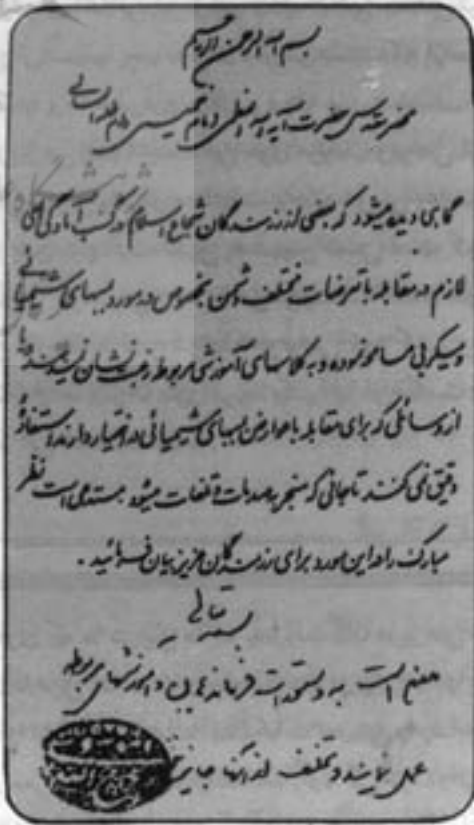 بسم الله الرحمن الرحیم
محضر مقدس حضرت آیة الله العظمی امام خمینی دام ظله العالی
گاهی دیده میشود که بعضی از رزمندگان شجاع اسلام در کسب آمادگی های
لازم در مقابله با تعرضات مختلف دشمن بخصوص در مورد بمبهای شیمیائی
و میکربی مسامحه نموده و به کلاسهای آموزشی مربوط رغبت نشان نمیدهند و یا
از وسائلی که برای مقابله با عوارض بمبهای شیمیائی در اختیار دارند استفاده
دقیق نمی کنند تا جائی که منجر به صدمات و تلفات میشود مستدعی است نظر
مبارک را در این مورد برای رزمندگان عزیز بیان فرمائید .
بسمه تعالی
لازم است به دستورات فرماندهان و آموزشهای مربوطه
عمل نمایند و تخلف از آنها جایز نیست